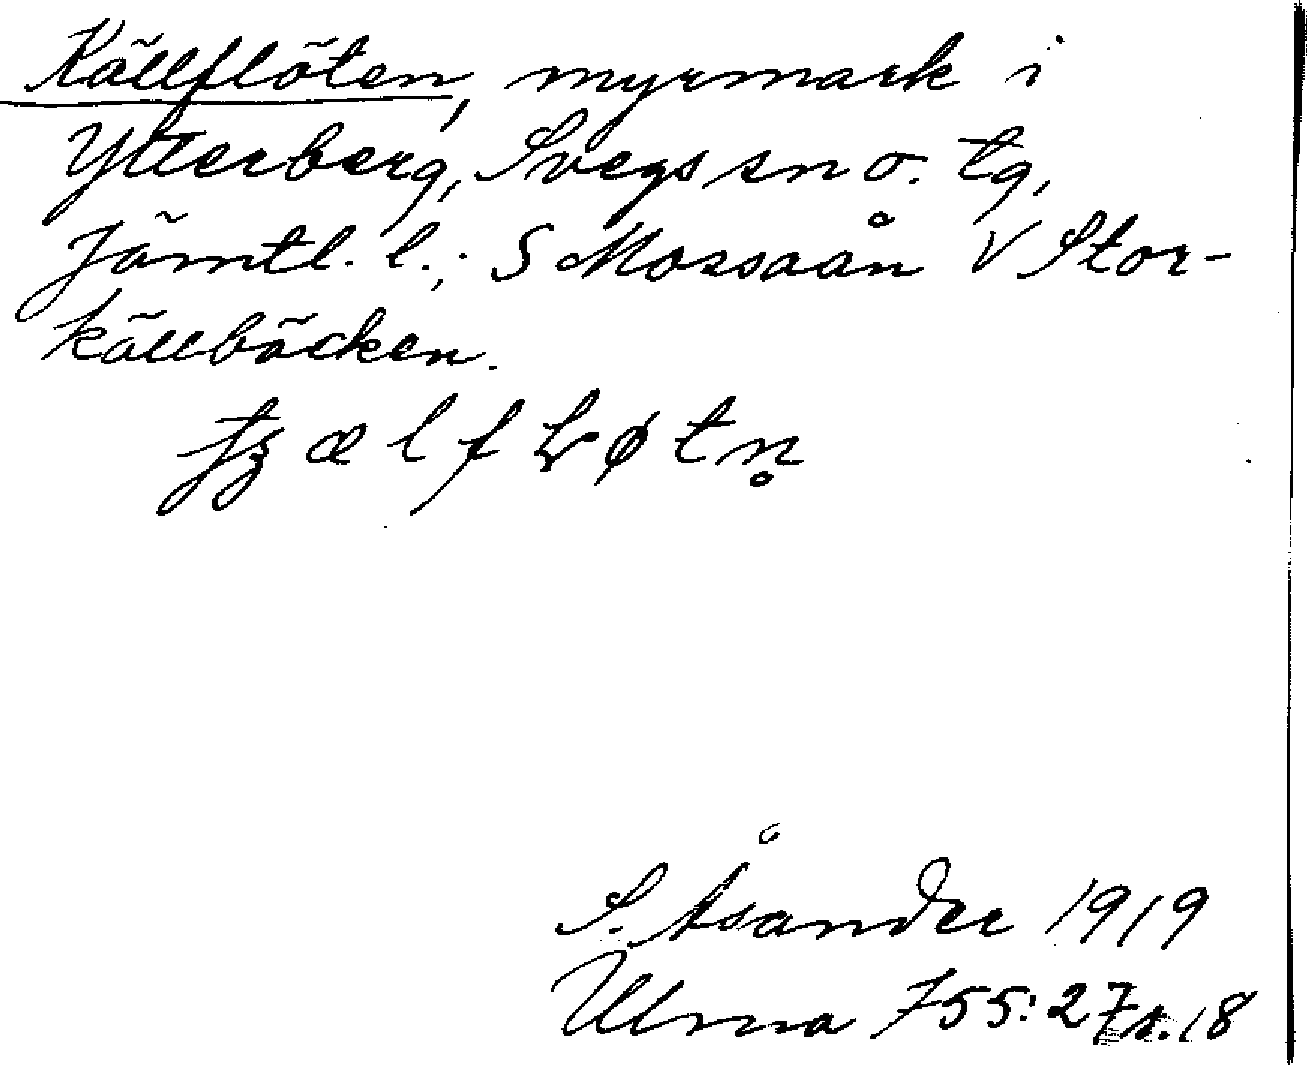 Källflöten, myrmark i
Ytterberg, Svegs sn o. tg,
Jämtl. l.; S Mossaån V Stor-
källbäcken.
S. Åsander 1919
Ulma 755:27 s. 18